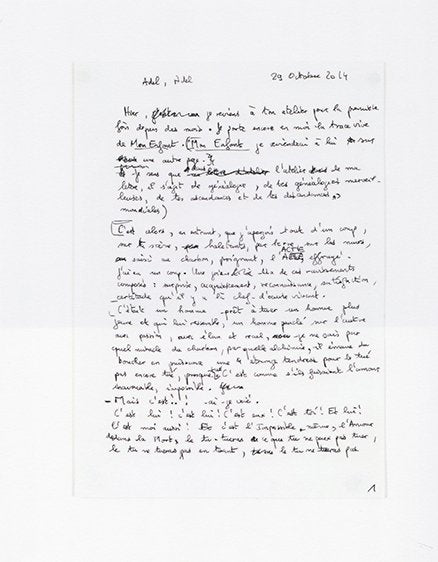 Adel, Adel 29 Octobre 2014
Hier, je reviens à ton atelier pour la première
fois depuis des mois. Je porte encore en moi la trace vive
de Mon Enfant. (Mon Enfant je reviendrai à lui sur
une autre page.
Je sens que l'atelier de ma
lettre, il s'agit de généalogie, de tes généalogies merveil-
leuses, de tes ascendances et de tes descendances
mondiales)
C'est alors, en entrant, que j'aperçois tout d'un coup,
sur la scène, haletants, sur les murs,
saisi au charbon, poignant, l'ACTE effrayé.
J'ai eu un coup. Une de ces ravissements
composés : surprise, acquiescement, reconnaissance, satisfaction,
certitude qu'il y a là chef-d'œuvre vivant.
C'était un homme prêt à tuer un homme plus
jeune et qui lui ressemble, un homme penché sur l'autre
avec passion, avec élan et recul, je ne sais par
quel miracle du charbon, par quelle alchimie, il émane du
boucher en puissance une étrange tendresse pour le tué
pas encore tué, presque tué. C'est comme s'ils faisaient l'amour
inavouable, impossible.
– Mais c'est..! ai-je crié.
C'est lui! c'est lui! C'est eux! C'est toi! Et lui!
C'est moi aussi! Et c'est l'Impossible même, l'Amour
dans la Mort, le tu-tueras ce que tu ne peux pas tuer,
le tu ne tueras pas en tuant, le tu ne tueras pas
1